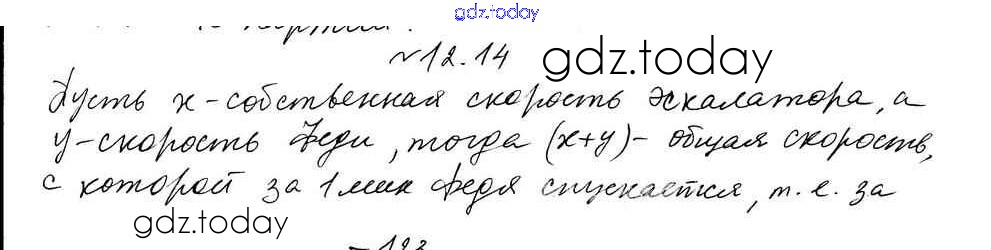 gdz.today
№12.14
gdz.today
Пусть x-собственная скорость эскалатора, а
y-скорость Феди, тогда (x+y)- общая скорость,
с которой за 1 мин Федя спускается, т. е. за
gdz.today